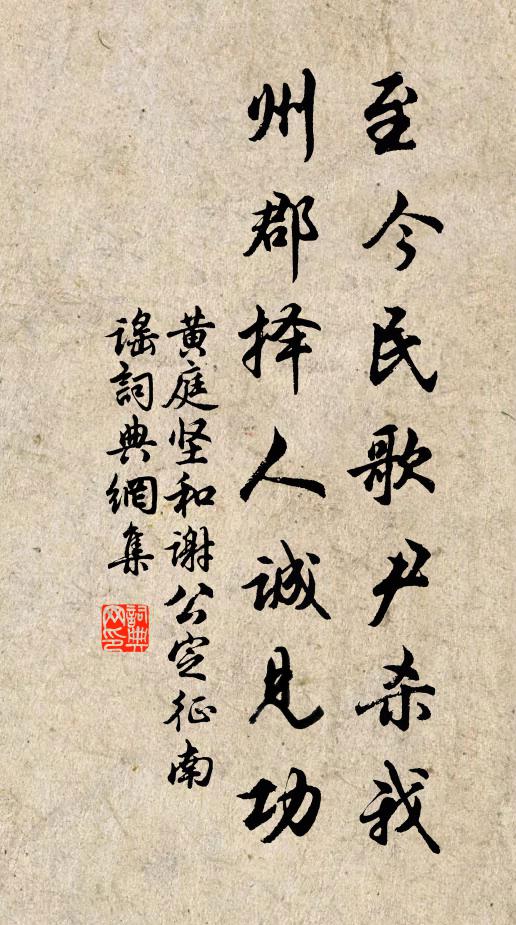 至今民歌尹杀我
州郡择人诚见功
黄庭坚和谢公定征南
谣詞典網集
詞典
网印